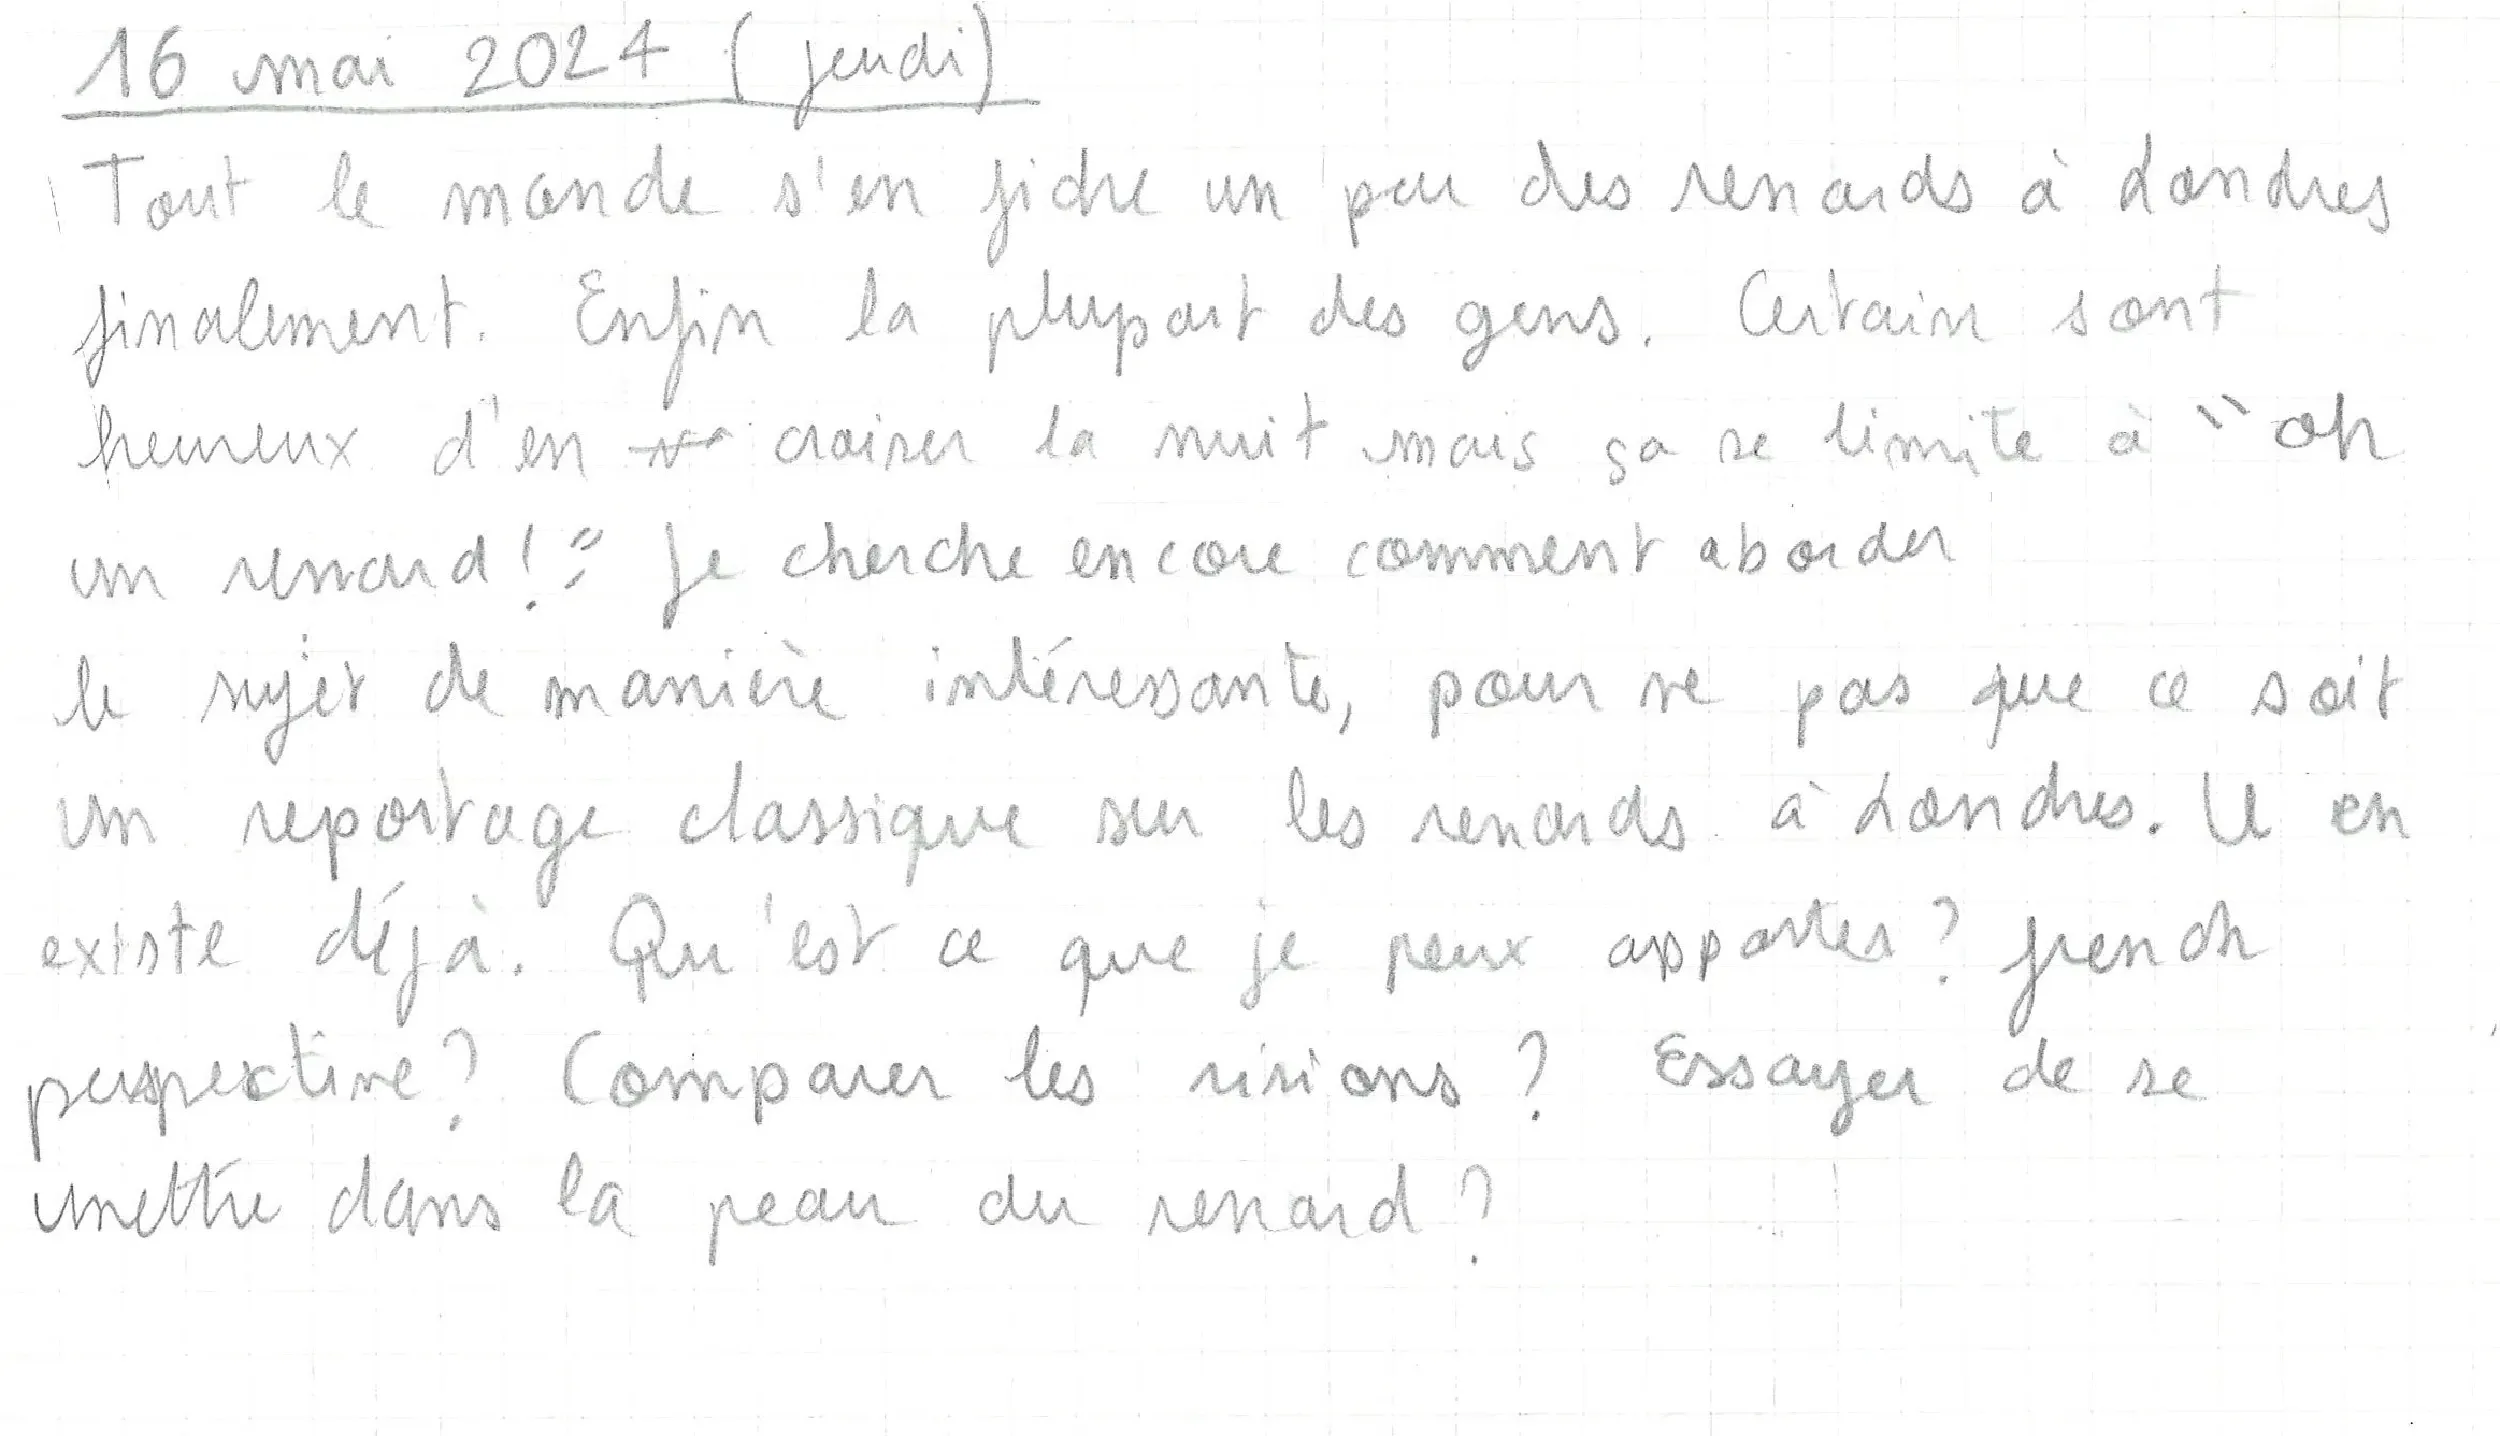 16 mai 2024 (jeudi)
Tout le monde s'en fiche un peu des renards à Londres
finalement. Enfin la plupart des gens. Certain sont
heureux d'en croiser la nuit mais ça se limite à "oh
un renard!" Je cherche encore comment aborder
le sujet de manière intéressante, pour ne pas que ce soit
un reportage classique sur les renards à Londres. Il en
existe déjà. Qu'est ce que je peux apporter? french
perspective? Comparer les visions? Essayer de se
mettre dans la peau du renard?